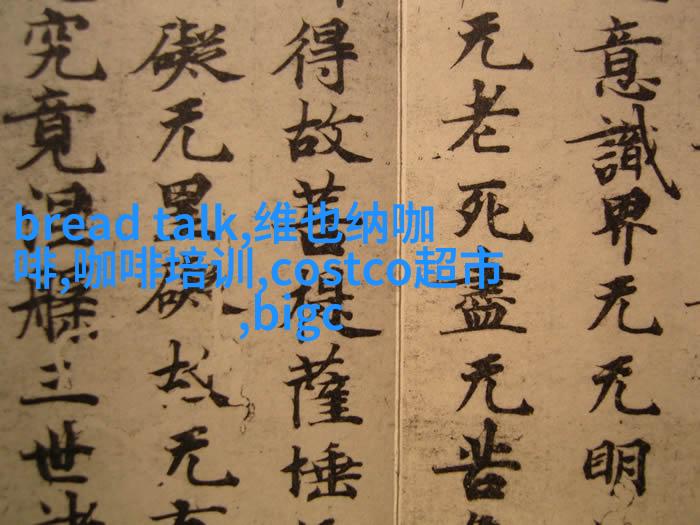 意識界无无明
无老死盡无苦
得故菩提薩埵
礙无罣礙故无有
究竟涅槃三世諸
bread talk,维也纳咖
啡,咖啡培训,costco超市
,bigc